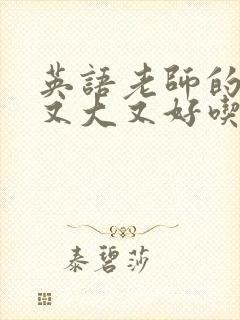 英語老師的
又大又好喫
泰碧莎